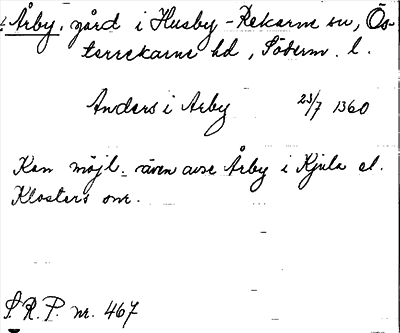 Årby, gård i Husby-Rekarne sn, Ös-
terrekarne hd, Söderm. l.
Anders i Arby 23/7 1360
Kan möjl. även avse Årby i Kjula el.
Klosters snr.
S.R.P. nr. 467